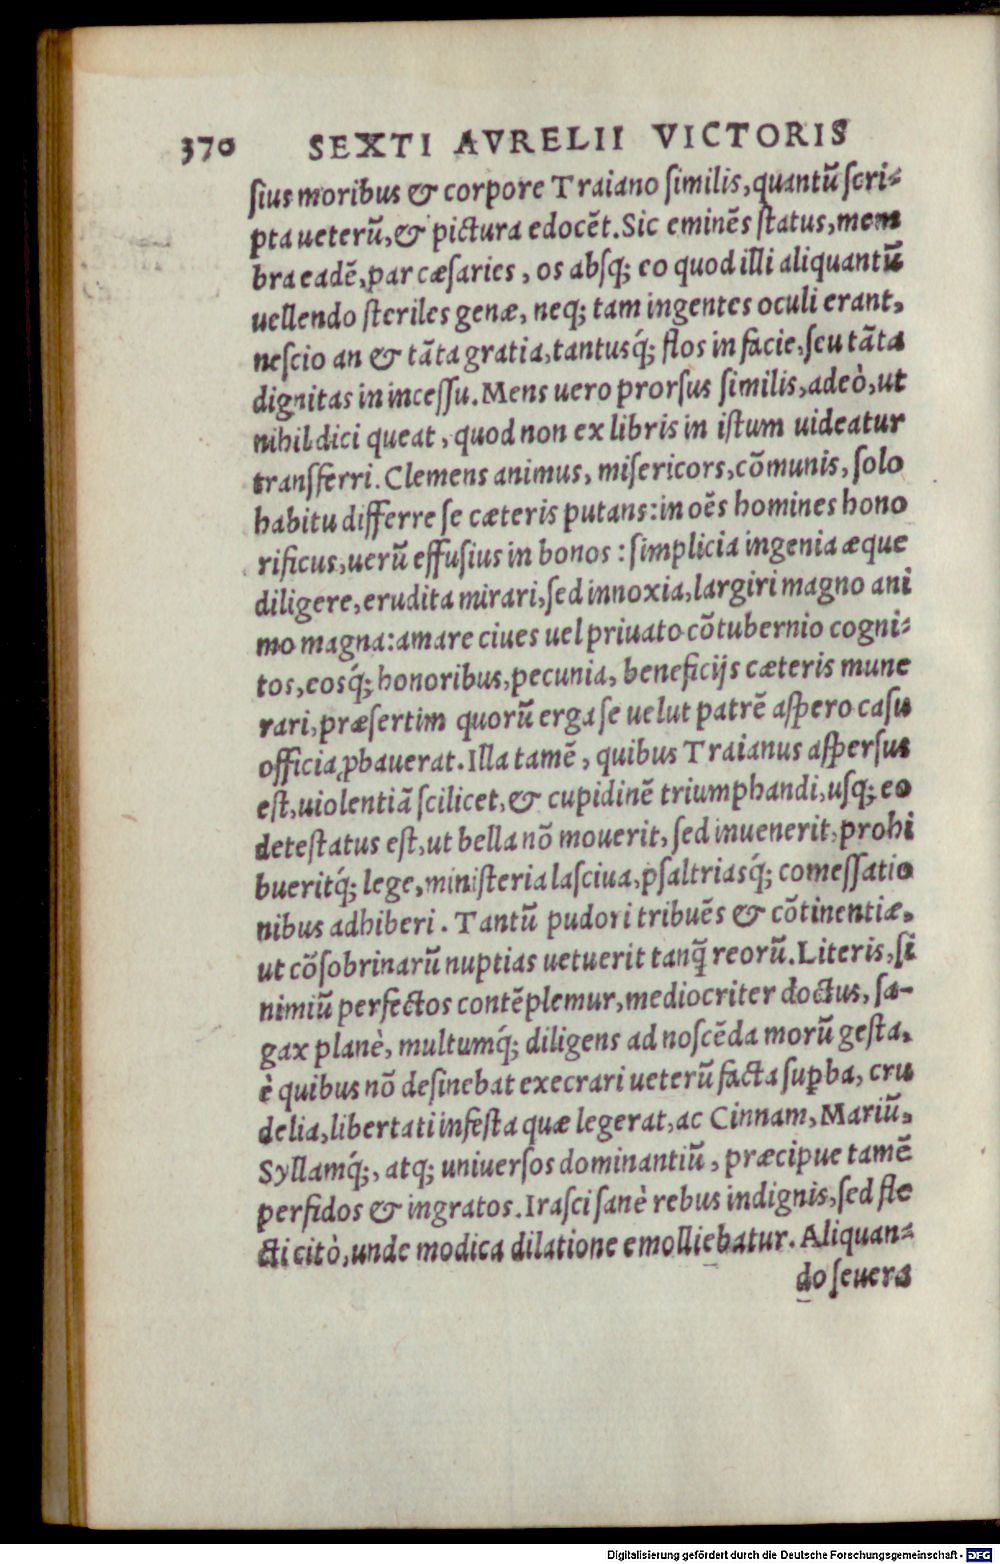 370 SEXTI AVRELII VICTORIS
sius moribus & corpore Traiano similis, quantũ scri-
pta ueterũ, & pictura edocẽt. Sic eminẽs status, mem
bra eadẽ, par cæsaries, os absq; eo quod illi aliquantũ
uellendo steriles genæ, neq; tam ingentes oculi erant,
nescio an & tãta gratia, tantusq́; flos in facie, seu tãta
dignitas in incessu. Mens uero prorsus similis, adeò, ut
nihil dici queat, quod non ex libris in istum uideatur
transferri. Clemens animus, misericors, cõmunis, solo
habitu differre se cæteris putans: in oẽs homines hono
rificus, uerũ effusius in bonos: simplicia ingenia æque
diligere, erudita mirari, sed innoxia, largiri magno ani
mo magna: amare ciues uel priuato cõtubernio cogni-
tos, eosq́; honoribus, pecunia, beneficijs cæteris mune
rari, præsertim quorũ erga se uelut patrẽ aspero casu
officia ꝓbauerat. Illa tamẽ, quibus Traianus aspersus
est, uiolentiã scilicet, & cupidinẽ triumphandi, usq; eo
detestatus est, ut bella nõ mouerit, sed inuenerit, prohi
bueritq́; lege, ministeria lasciua, psaltriasq́; comessatio
nibus adhiberi. Tantũ pudori tribuẽs & cõtinentiæ,
ut cõsobrinarũ nuptias uetuerit tanq̃ reorũ. Literis, si
nimiũ perfectos contẽplemur, mediocriter doctus, sa-
gax planè, multumq́; diligens ad noscẽda morũ gesta,
è quibus nõ desinebat execrari ueterũ facta suꝑba, cru
delia, libertati infesta quæ legerat, ac Cinnam, Mariũ,
Syllamq́;, atq; uniuersos dominantiũ, præcipue tamẽ
perfidos & ingratos. Irasci sanè rebus indignis, sed fle
cti citò, unde modica dilatione emolliebatur. Aliquan-
do seuera
Digitalisierung gefördert durch die Deutsche Forschungsgemeinschaft - DFG